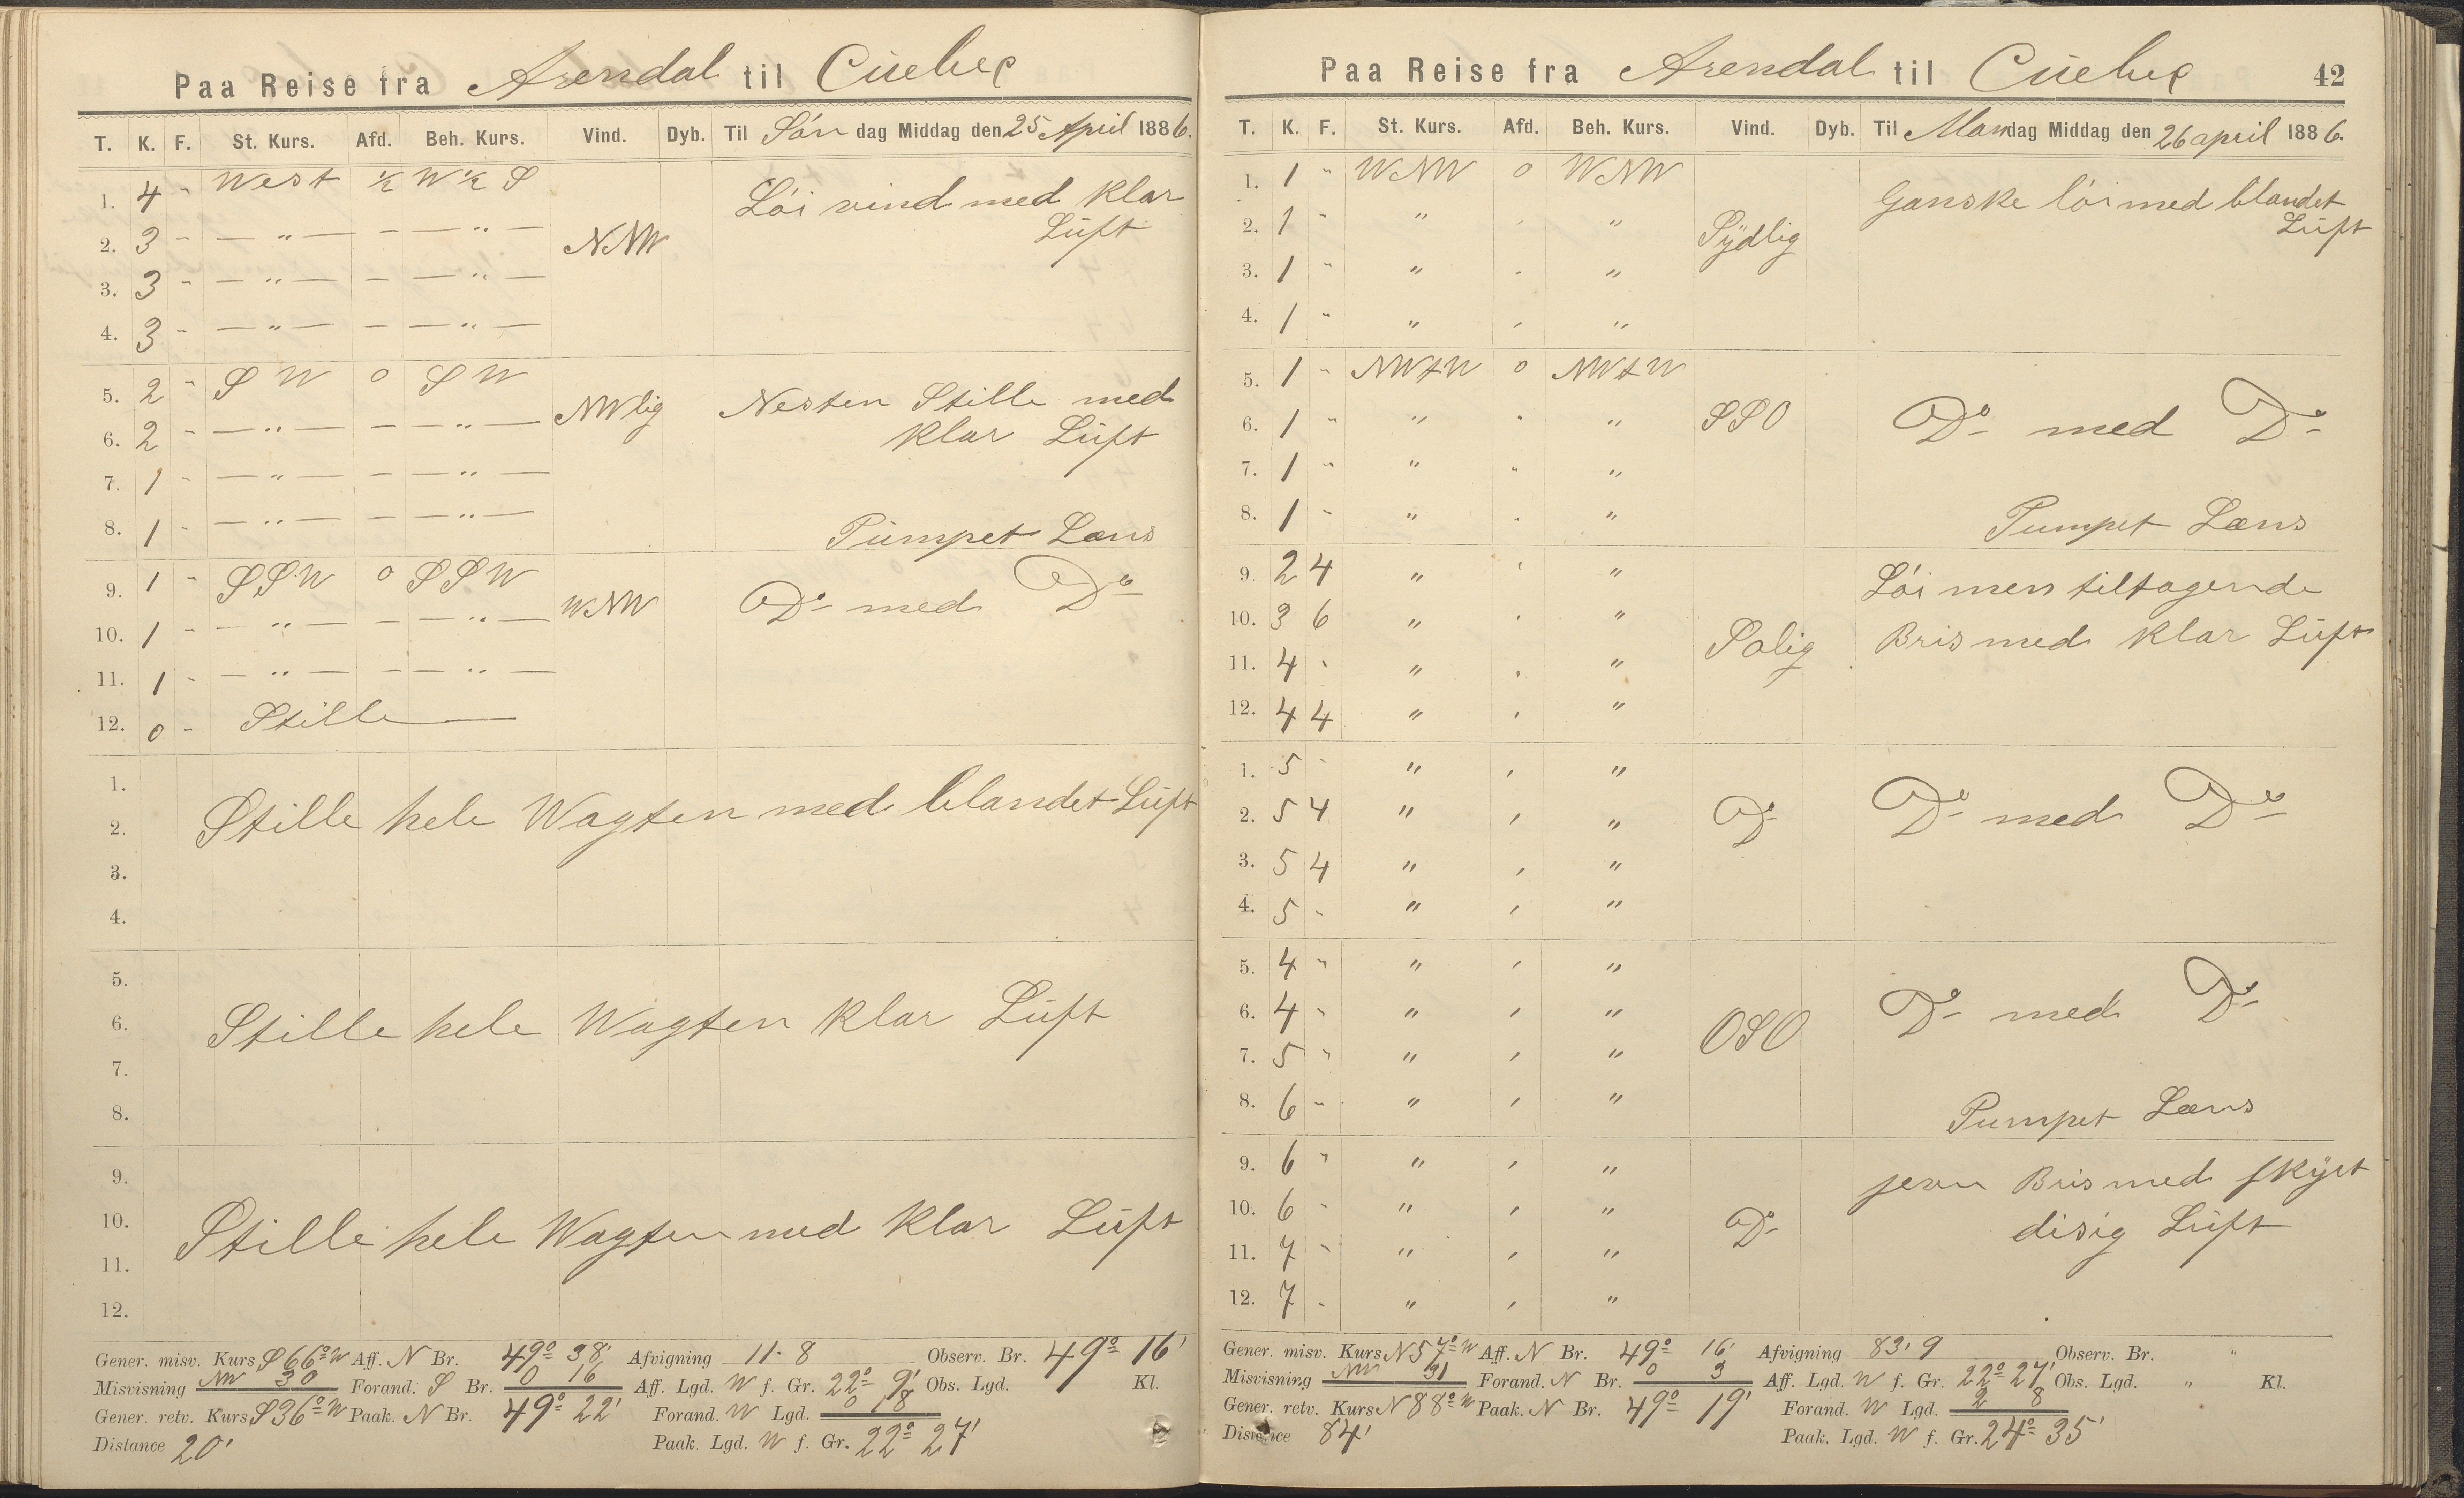 Paa Reise fra Arendal til Cüebec
T. K. F. St. Kurs. Afd. Beh. Kurs. Vind. Dyb. Til Søn dag Middag den 25 April 1886.
1. 4 " West ½ W ½ S Löi vind med Klar
Lüft
2. 3 - — " — - — " — NNW
3. 3 - — " — - — " —
4. 3 - — " — - — " —
5. 2 " S W 0 S W
NWlig Nesten Stille med
6. 2 - — " — - — " — klar Lüft
7. 1 - — " — - — " —
8. 1 - — " — - — " — Pümpet Læns
9. 1 " SSW 0 SSW
WNW Do med Do
10. 1 - — " — - — " —
11. 1 - — " — - — " —
12. 0 - Stille —
1.
2. Stille hele Wagten med blandet Lüft
3.
4.
5.
6. Stille hele Wagten Klar Lüft
7.
8.
9.
10. Stille hele Wagten med Klar Lüft
11.
12.
Gener. misv. Kurs S 66° W Aff. N Br. 49° 38' Afvigning 11.8 Observ. Br. 49° 16'
Misvisning NW 30 Forand. S Br. 0 16 Aff. Lgd. W f. Gr. 22° 9' Obs. Lgd. Kl.
Gener. retv. Kurs S 36° W Paak. N Br. 49° 22' Forand. W Lgd. 0 18
Distance 20' Paak. Lgd. W f. Gr. 22° 27'
Paa Reise fra Arendal til Cüebec 42
T. K. F. St. Kurs. Afd. Beh. Kurs. Vind. Dyb. Til Mandag Middag den 26 april 1886.
1. 1 " WNW 0 WNW Ganske löi med blandet
Lüft
2. 1 " " , " Sÿdlig
3. 1 " " , "
4. 1 " " , "
5. 1 " NWtW 0 NWtW
6. 1 " " " " SSO Do med Do
7. 1 " " " "
8. 1 " " " " Pumpet Læns
9. 2 4 " ' " Löi men tiltagende
10. 3 6 " ' "
Solig Bris med klar Lüft
11. 4 " " ' "
12. 4 4 " , "
1. 5 " " , "
2. 5 4 " , " Do Do med Do
3. 5 4 " , "
4. 5 - " , "
5. 4 " " , "
6. 4 " " , " OSO Do med Do
7. 5 " " , "
8. 6 " " , " Pumpet Læns
9. 6 " " , " jevn Bris med skÿet
10. 6 " " , " Do disig Lüft
11. 7 " " , "
12. 7 " " , "
Gener. misv. Kurs N 57° W Aff. N Br. 49° 16' Afvigning 83,9 Observ. Br. "
Misvisning NW 31 Forand. N Br. 0 3 Aff. Lgd. W f. Gr. 22° 27' Obs. Lgd. " Kl.
Gener. retv. Kurs N 88° W Paak. N Br. 49° 19' Forand. W Lgd. 2 8
Distance 84' Paak. Lgd. W f. Gr. 24° 35'